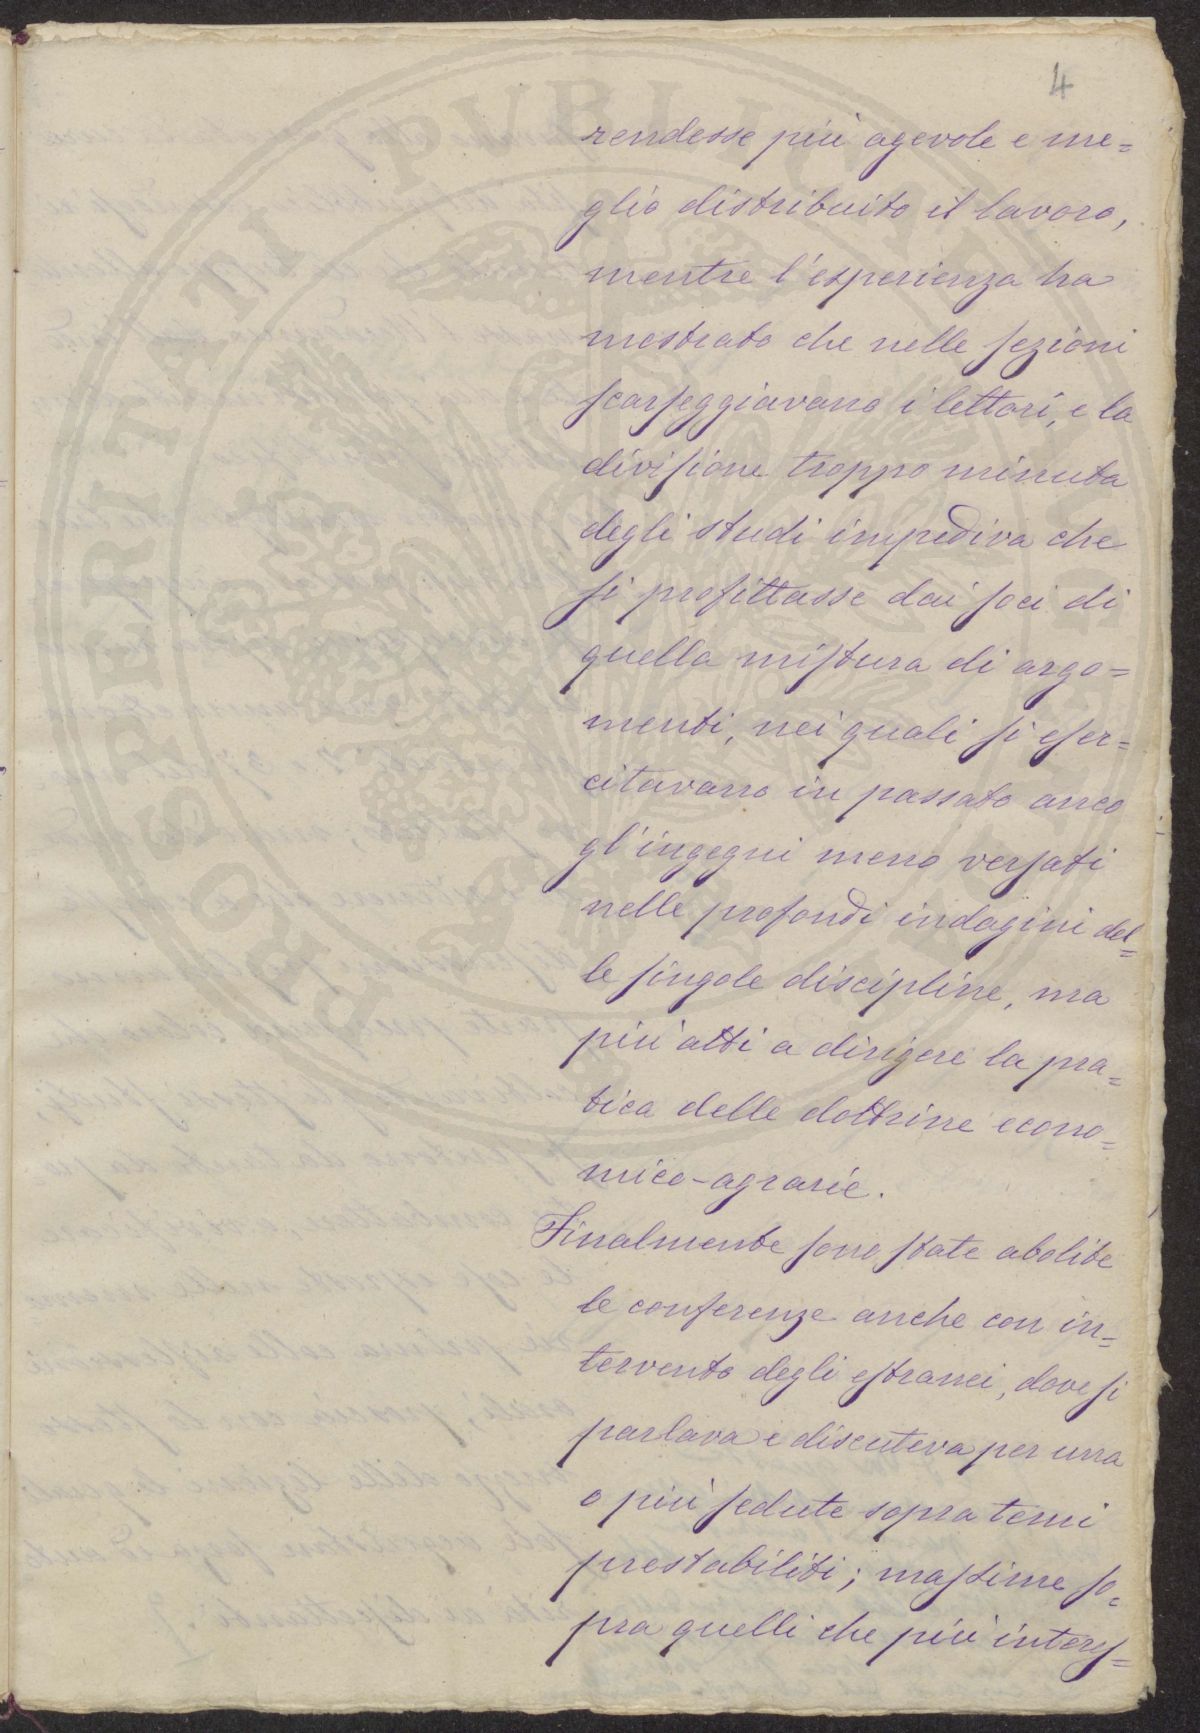 4
rendesse più agevole e me=
glio distribuito il lavoro,
mentre l'esperienza ha
mostrato che nelle sezioni
scarseggiavano i lettori, e la
divisione troppo minuta
degli studi impediva che
si profittasse dai soci di
quella mistura di argo=
menti, nei quali si eser=
citavano in passato anco
gl'ingegni meno versati
nelle profondi indagini del=
le singole discipline, ma
più atti a dirigere la pra=
tica delle dottrine econo=
mico-agrarie.
Finalmente sono state abolite
le conferenze anche con in=
tervento degli estranei, dove si
parlava e discuteva per una
o più sedute sopra temi
prestabiliti; massime so=
pra quelli che più interes=